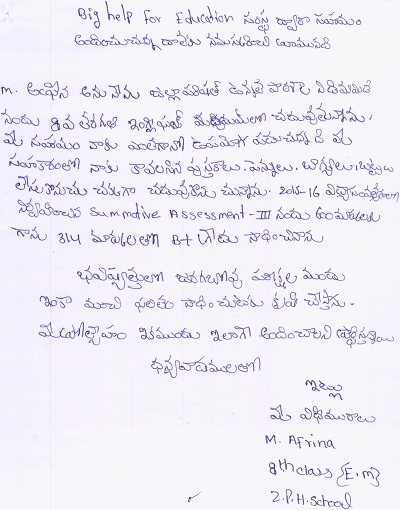 Big help for Education సంస్థ ద్వారా సహాయం
అందించుచున్న దాతలకు నమస్కారాలు
M. అఫ్రిన అను నేను జిల్లా పరిషత్ ఉన్నత పాఠశాల నిడిముక్కల
నందు 8వ తరగతి ఇంగ్లీషు మీడియంలో చదువుతున్నాను.
మీ సహాయం నాకు ఎంతగానో ఉపయోగ పడుచున్నది మీ
సహకారంతో నాకు కావలసిన పుస్తకాలు, పెన్నులు, బ్యాగ్గులు,
చక్కగా చదువుకొను చున్నాను. 2015-16 విద్యాసంవత్సరంలో
నిర్వహించిన Summative Assessment-III నందు
గాను 314 మార్కులతో B+ గ్రేడు సాధించినాను
భవిష్యత్తులో జరగబోవు పరీక్షల ముందు
ఇంకా మంచి ఫలితం సాధించుటకు కృషి చేస్తాను.
మీ ప్రోత్సాహం ఇకముందు ఇలాగే అందించాలని ప్రార్థిస్తున్నాను
ధన్యవాదములతో
ఇట్లు
మీ విధేయురాలు
M. Afrina
8th class {E.m}
Z.P.H.School